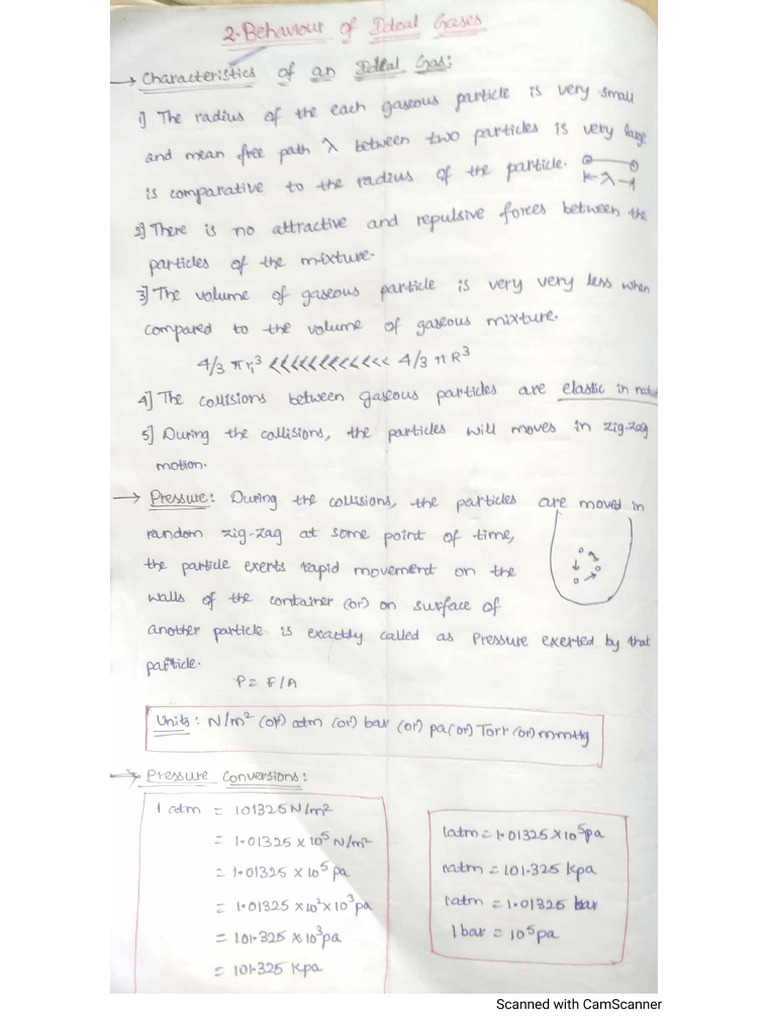 2. Behaviour of Ideal Gases
→ Characteristics of an Ideal Gas:
1] The radius of the each gaseous particle is very small
and mean free path λ between two particles is very large
is comparative to the radius of the particle.
← λ →
2] There is no attractive and repulsive forces between the
particles of the mixture.
3] The volume of gaseous particle is very very less when
compared to the volume of gaseous mixture.
4/3 π r₁³ <<<<<<<<<<<< 4/3 π R³
4] The collisions between gaseous particles are elastic in nature
5] During the collisions, the particles will moves in zig-zag
motion.
→ Pressure: During the collisions, the particles are moved in
random zig-zag at some point of time,
the particle exerts rapid movement on the
walls of the container (or) on surface of
another particle is exactly called as Pressure exerted by that
particle.
P = F/A
Units: N/m² (or) atm (or) bar (or) pa (or) Torr (or) mmHg
→ Pressure Conversions:
1 atm = 101325 N/m²
= 1.01325 x 10⁵ N/m²
= 1.01325 x 10⁵ pa
= 1.01325 x 10² x 10³ pa
= 101.325 x 10³ pa
= 101.325 Kpa
1atm = 1.01325 x 10⁵ pa
1atm = 101.325 Kpa
1atm = 1.01325 bar
1 bar = 10⁵ pa
Scanned with CamScanner